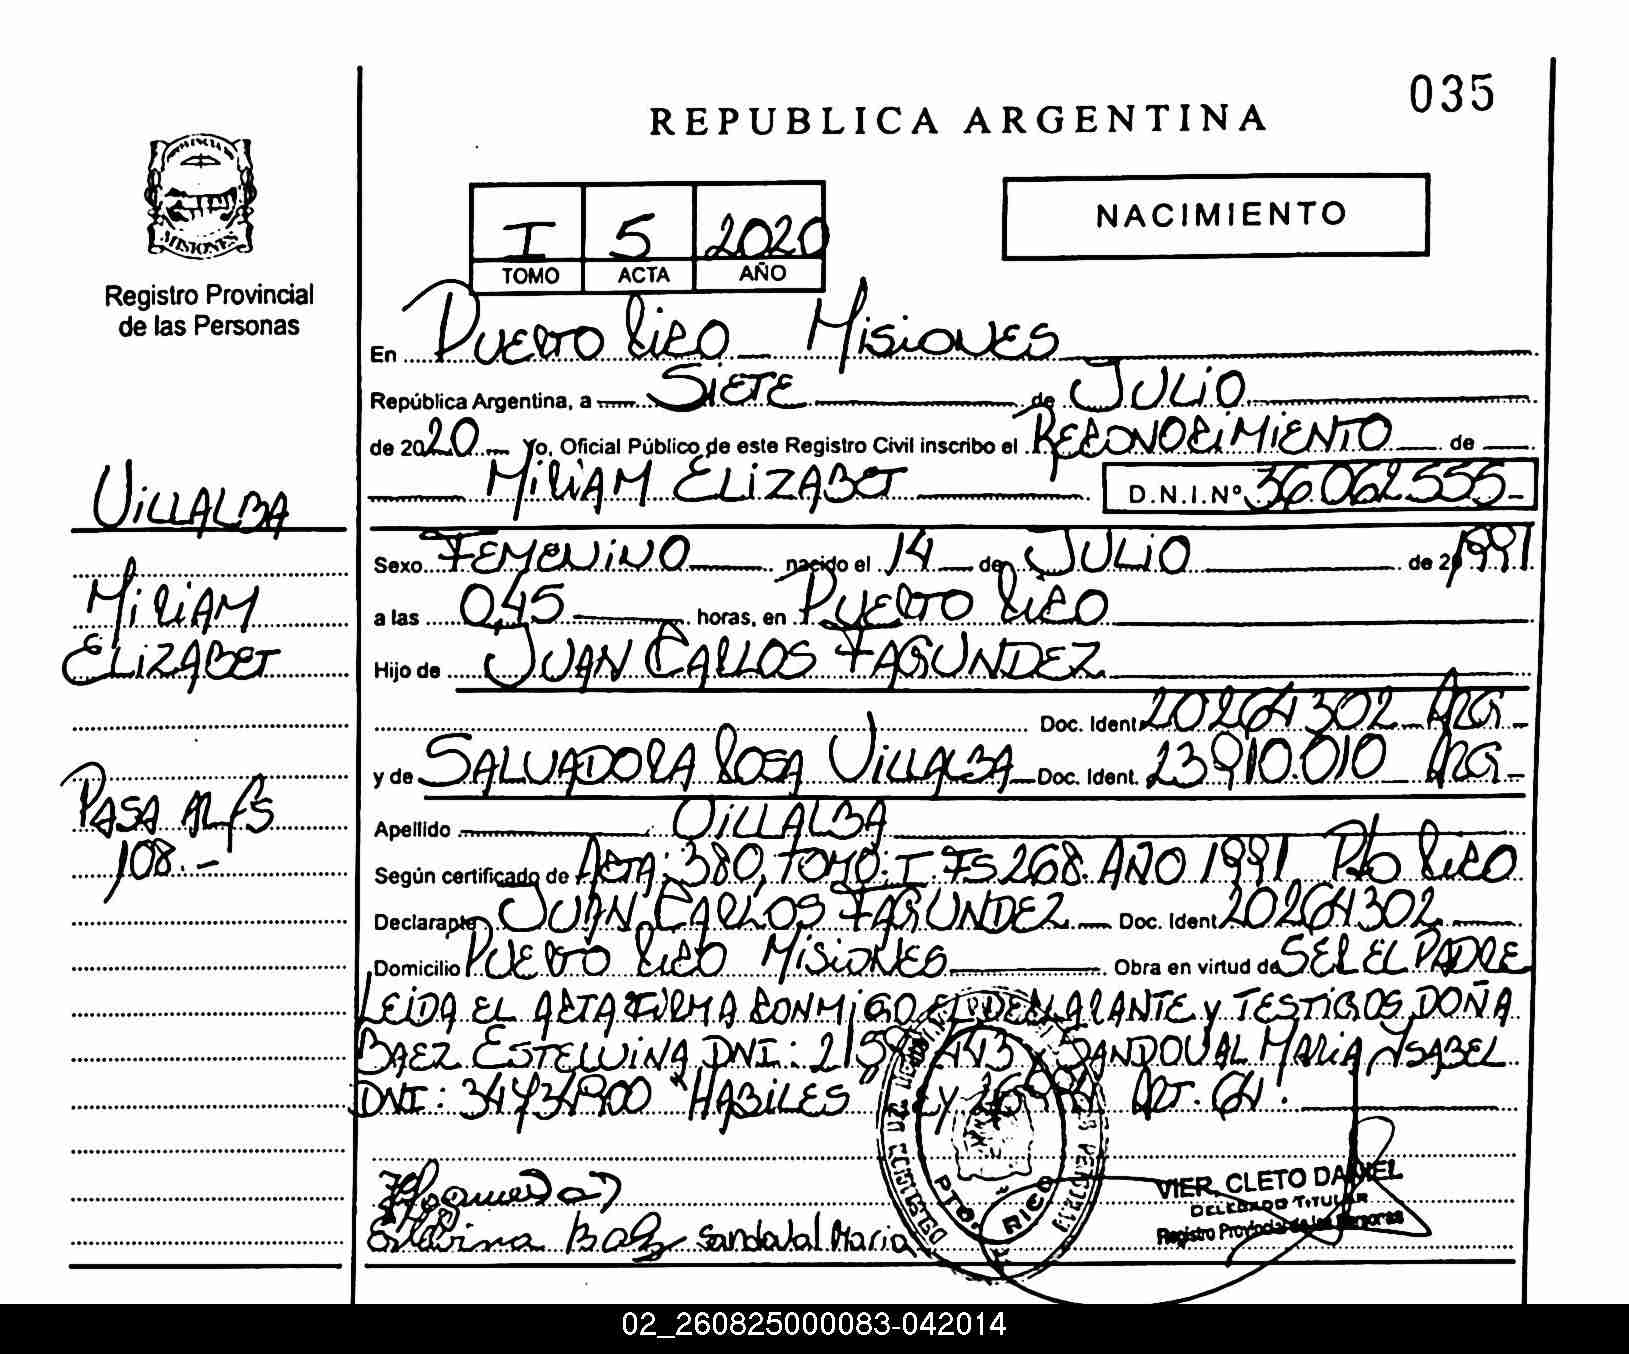 035
REPUBLICA ARGENTINA
PROVINCIA DE
MISIONES
Registro Provincial
de las Personas
NACIMIENTO
I 5 2020
TOMO ACTA AÑO
En Puerto Rico Misiones
República Argentina, a Siete de Julio
de 2020 Yo, Oficial Público de este Registro Civil inscribo el RECONOCIMIENTO de
MIRIAM ELIZABET D.N.I.Nº 36.062.555-
VILLALBA
MIRIAM
ELIZABET
PASA AL FS
108.-
Sexo FEMENINO nacido el 14 de JULIO de 1991
a las 0,45 horas, en PUERTO RICO
Hijo de JUAN CARLOS FAGUNDEZ
Doc. Ident. 20264302 ARG-
y de SALVADORA ROSA VILLALBA Doc. Ident. 23.910.010 ARG-
Apellido VILLALBA
Según certificado de ACTA: 380, TOMO: I. FS 268. AÑO 1991 Pto RICO
Declarante JUAN CARLOS FAGUNDEZ Doc. Ident 20264302
Domicilio PUERTO RICO MISIONES Obra en virtud de SER EL PADRE
LEIDA EL ACTA FIRMA CONMIGO EL DECLARANTE Y TESTIGOS DOÑA
BAEZ ESTELVINA DNI: 443 SANDOVAL MARIA YSABEL
DNI: 34734900 "HABILES" LEY ART. 64.
PTO. RICO
VIER, CLETO DANIEL
DELEGADO TITULAR
Registro Provincial de las Personas
Baez Sandoval Maria
02_260825000083-042014